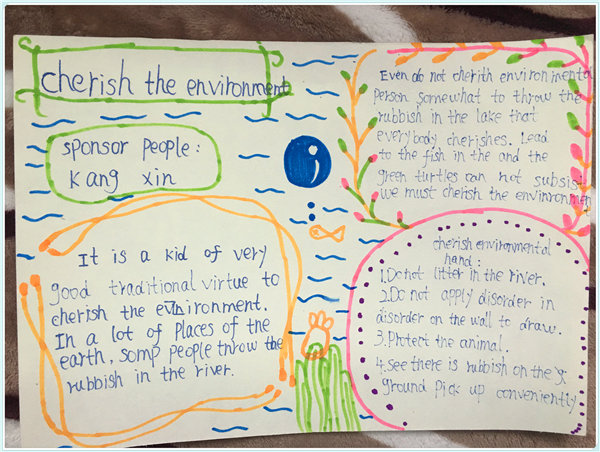 cherish the environment
sponsor people:
Kang xin
It is a kid of very
good traditional virtue to
cherish the environment.
In a lot of places of the
earth, some people throw the
rubbish in the river.
Even do not cherith environmental
person somewhat to throw the
rubbish in the lake that
everybody cherishes. Lead
to the fish in the and the
green turtles can not subsist
we must cherish the environment
cherish environmental
hand:
1.Do not litter in the river.
2.Do not apply disorder in
disorder on the wall to draw.
3.Protect the animal.
4.See there is rubbish on the
ground pick up conveniently